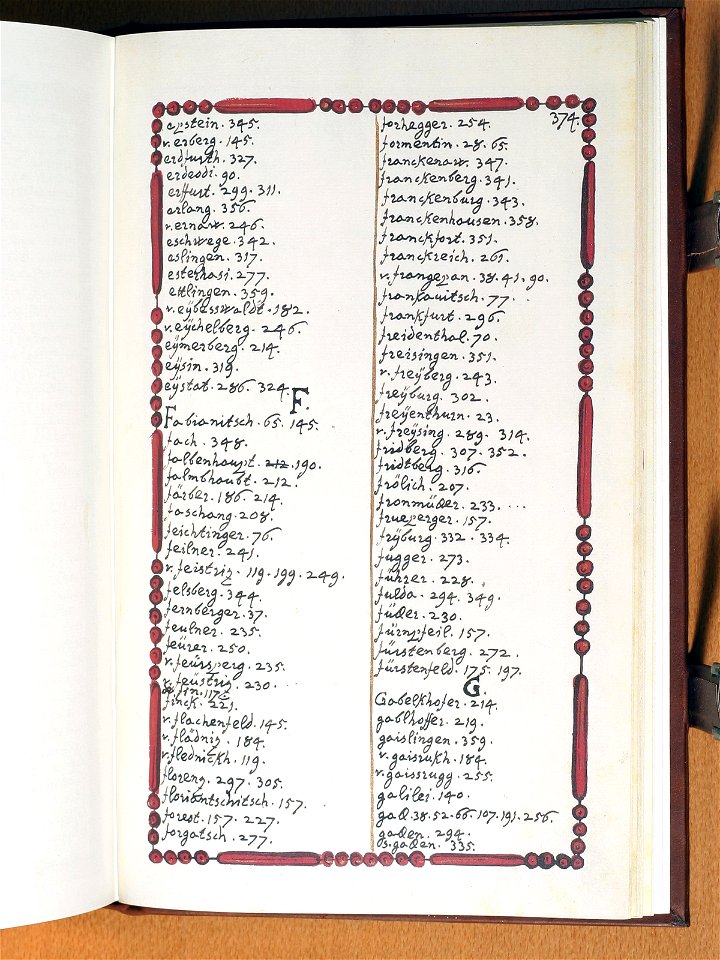 epstein. 345.
v. erberg. 145.
erdfurth. 327.
erdeodi. 90.
erffurt. 299. 311.
erlang. 356.
v. ernaw. 246.
eschwege. 342.
eslingen. 317.
esterhasi. 277.
ettlingen. 359.
v. eÿbesswaldt. 182.
v. eÿchelberg. 246.
eÿmerberg. 214.
eÿsin. 319.
eÿstat. 286. 324.
F.
Fabianitsch. 65. 145.
fach. 348.
falbenhaupt. 212. 190.
falmbhaubt. 212.
färber. 186. 214.
faschang. 208.
feichtinger. 76.
feilner. 241.
v. feistriz. 119. 199. 249.
felsberg. 344.
fernberger. 37.
feulner. 235.
feürer. 250.
v. feürsperg. 235.
v. feüstriz. 230.
de fin. 117.
finck. 221.
v. flachenfeld. 145.
v. flädniz. 184.
v. flednickh. 119.
florenz. 297. 305.
floriantschitsch. 157.
forest. 157. 227.
forgatsch. 277.
374.
forhegger. 254.
formentin. 28. 65.
franckenaw. 347.
franckenberg. 341.
franckenburg. 343.
franckenhausen. 358.
franckfort. 351.
franckreich. 261.
v. frangepan. 38. 41. 90.
frankovitsch. 77.
frankfurt. 296.
freidenthal. 70.
freisingen. 351.
v. freÿberg. 243.
freÿburg. 302.
freÿenthurn. 23.
v. freÿsing. 289. 314.
fridberg. 307. 352.
fridtberg. 316.
frölich. 207.
fronmüder. 233.
frueperger. 157.
frÿburg. 332. 334.
fugger. 273.
führer. 228.
fulda. 294. 349.
füder. 230.
fürnpfeil. 157.
fürstenberg. 272.
fürstenfeld. 175. 197.
G.
Gabelkhofer. 214.
gablhoffer. 219.
gaislingen. 359.
v. gaisrukh. 184.
v. gaissrugg. 255.
galilei. 140.
gall. 38. 52. 66. 107. 191. 256.
gaden. 294.
s. gaden. 335.